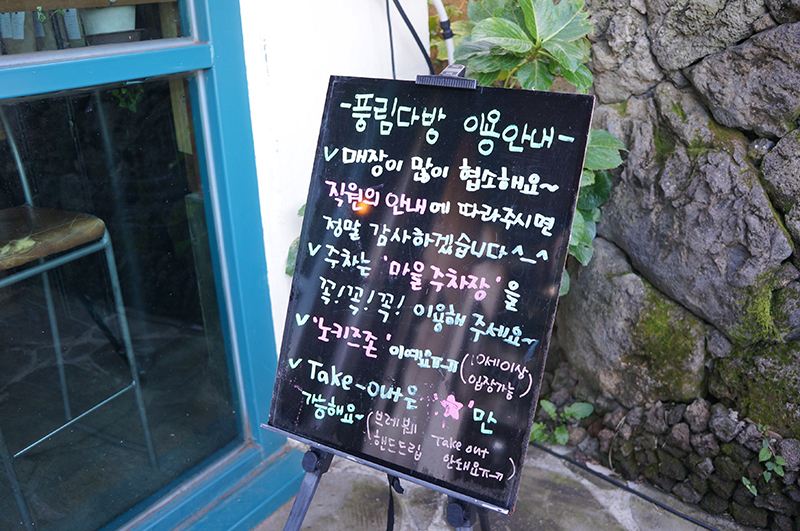 -풍림다방 이용안내-
✓ 매장이 많이 협소해요~
직원의 안내에 따라주시면
정말 감사하겠습니다^_^
✓ 주차는 '마을주차장'을
꼭!꼭!꼭! 이용해 주세요~
✓ '노키즈존'이예요ㅠㅠ (10세이상 입장가능)
✓ Take-out은 '☆'만
가능해요~ (브레붸 핸드드립 Take out 안돼요ㅠㅠ)